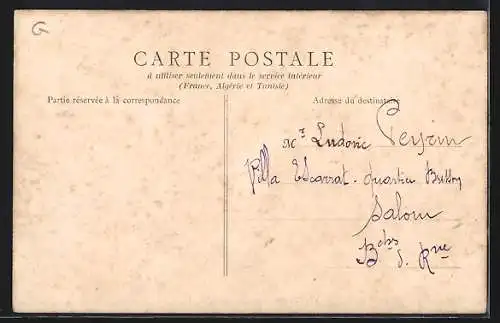 G
CARTE POSTALE
à utiliser seulement dans le service intérieur
(France, Algérie et Tunisie)
Partie réservée à la correspondance
Adresse du destinataire
Mr Ludovic Peyrin
Villa Escarrat. quartier
Salon
Bches d. Rne